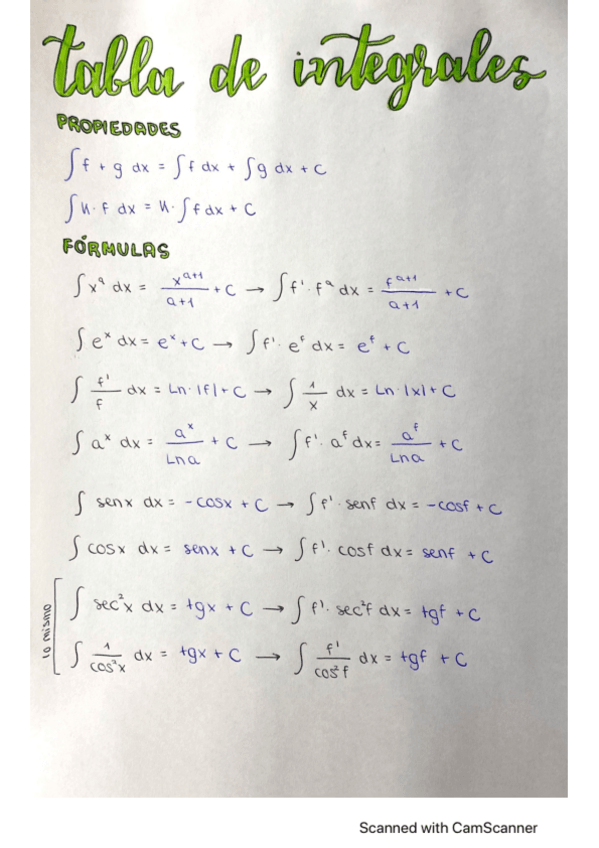 tabla de integrales
PROPIEDADES
∫ f + g dx = ∫ f dx + ∫ g dx + C
∫ K · f dx = K · ∫ f dx + C
FÓRMULAS
∫ xᵃ dx = xᵃ⁺¹/a+1 + C → ∫ f' · fᵃ dx = fᵃ⁺¹/a+1 + C
∫ eˣ dx = eˣ + C → ∫ f' · eᶠ dx = eᶠ + C
∫ f'/f dx = Ln · |f| + C → ∫ 1/x dx = Ln · |x| + C
∫ aˣ dx = aˣ/Lna + C → ∫ f' · aᶠ dx = aᶠ/Lna + C
∫ senx dx = -cosx + C → ∫ f' · senf dx = -cosf + C
∫ cosx dx = senx + C → ∫ f' · cosf dx = senf + C
lo mismo
∫ sec²x dx = tgx + C → ∫ f' · sec²f dx = tgf + C
∫ 1/cos²x dx = tgx + C → ∫ f'/cos²f dx = tgf + C
Scanned with CamScanner